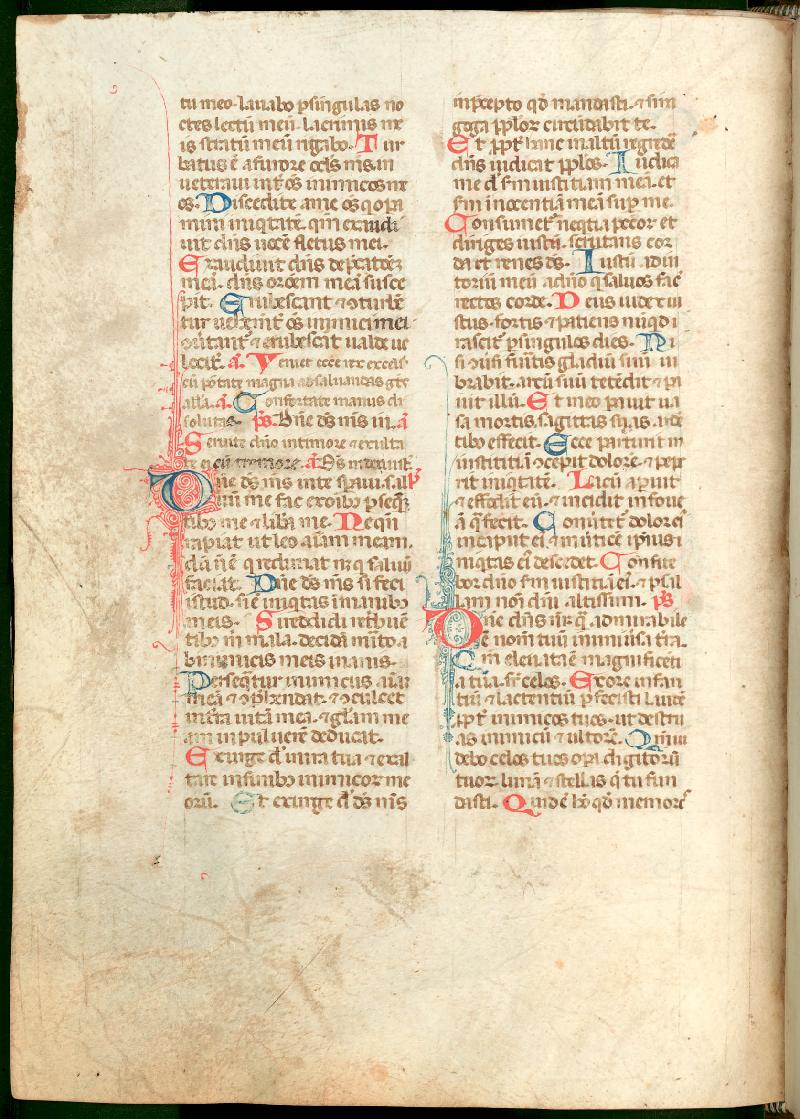 tu meo. lauabo p singulas no
ctes lectū meū. lacrimis me
is stratū meū rigabo. Tur
batus ē a furore oclꝰs mꝰs. in
ueteraui int̄ oēs inimicos me
os. Discedite a me oēs q opa
mini iniq̇tatē. qm̄ exaudi
uit dn̄s uocē fletus mei.
Exaudiuit dn̄s dep̄catōeꝫ
meā. dn̄s orōem meā susce
pit. Erubescant ⁊ ꝯturbē
tur uehem̄t̄ oēs inimici mei
ꝯūtant̄ ⁊ erubescāt ualde ue
locit̄. a. Veniet ecce rex excels
cū ptāte magna ad saluandas gēte
alla. a. Confortate manus di
solutas. ps. Dn̄e ds̄ ms̄ in. a
Seruite dn̄o in timore ⁊ exulta
te ei cū tremore. a. Ds̄ iudex iust̄.
Dn̄e ds̄ ms̄ in te spaui. sal
uū me fac ex oīb ꝑseq̄
tibꝰ me ⁊ libā me. Neqn̄
rapiat ut leo aīam meam.
dū nō ē q redimat neq̄ saluū
faciat. Dn̄e ds̄ ms̄ si feci
istud. si ē iniq̇tas ī manibꝰ
meis. Si reddidi retbuē
tibꝰ m̄ mala. decidā mīto a
b inimicis meis inanis.
Perseq̄tur inimicus aīaꝫ
meā ⁊ ꝯp̄hendat. ⁊ ꝯculcet
in t̄ra uitā meā. ⁊ gl̄am me
am in puluerē deducat.
Exurge dn̄e in ira tua ⁊ exal
tare in finibꝰ inimicoꝝ me
orū. Et exurge dn̄e ds̄ ms̄
in p̄cepto qd̄ mandasti. ⁊ sin
goga ppl̄oꝝ circūdabit te.
Et ppt̄ hanc in altū regrede
dn̄s iudicat ppl̄os. Iudica
me dn̄e s̄m iustitiam meā. et
s̄m īnocentiā meā sup me.
Consumet̄ neq̇tia pecc̄oꝝ et
diriges iustū. scrutans cor
da et renes ds̄. Iustū adiu
toriū meū a dn̄o q saluos fac̄
rectos corde. Deus iudex iu
stus. fortis ⁊ patiens nūqd i
rascit̄ p singulos dies. Ni
si ꝯūsi fūitis gladiū suū ui
brabit. arcū suū tetēdit ⁊ pa
uit illū. Et in eo pauit ua
sa mortis. sagittas suas arde
tibꝰ effecit. Ecce parturit in
iustitiā ꝯcepit dolorē. ⁊ pep̄
rit iniq̇tatē. Lacū apuit
⁊ effodit eū. ⁊ incidit in foue
ā q̄ fecit. Conūtet̄ dolor eiꝰ
in caput eiꝰ ⁊ in ūticē ip̄ius i
niq̇tas eiꝰ descēdet. Confite
bor dn̄o s̄m iustitiā eiꝰ. ⁊ psal
lam noī dn̄i altissimi. ps
Dn̄e dn̄s nr̄. q̄ admirabile
ē nom̄ tuū in uniūsa t̄ra.
Qm̄ eleuata ē magnificēti
a tua. sr̄ celos. Ex ore infan
tiū ⁊ lactentiū ꝑfecisti laudē
ꝓpt̄ inimicos tuos. ut destru
as inimicū ⁊ ultorē. Qm̄ ui
debo celos tuos opa digitorū
tuoꝝ. lunā ⁊ stellas q̄ tu fun
dasti. Quid ē hō qd̄ memor ēs